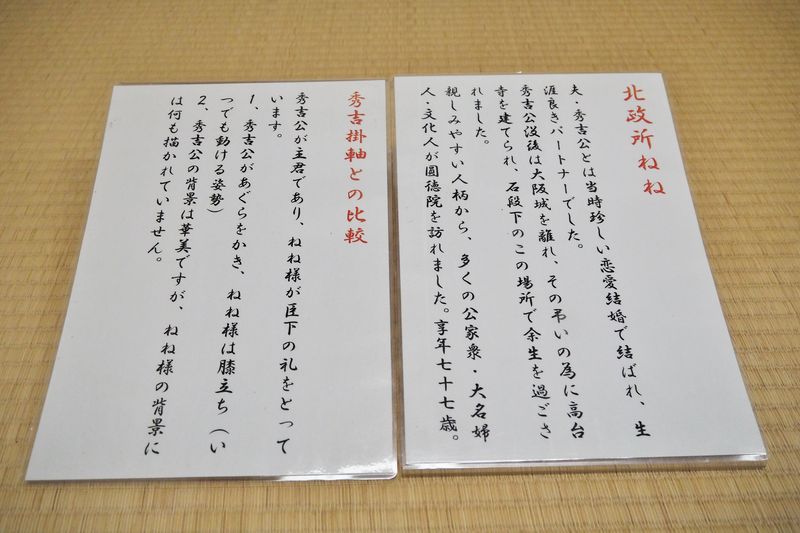 北政所ねね
夫・秀吉公とは当時珍しい恋愛結婚で結ばれ、生
涯良きパートナーでした。
秀吉公没後は大阪城を離れ、その弔いの為に高台
寺を建てられ、石段下のこの場所で余生を過ごさ
れました。
親しみやすい人柄から、多くの公家衆・大名婦
人・文化人が圓徳院を訪れました。享年七十七歳。
秀吉掛軸との比較
秀吉公が主君であり、ねね様が臣下の礼をとって
います。
1、秀吉公があぐらをかき、ねね様は膝立ち（い
つでも動ける姿勢）
2、秀吉公の背景は華美ですが、ねね様の背景に
は何も描かれていません。